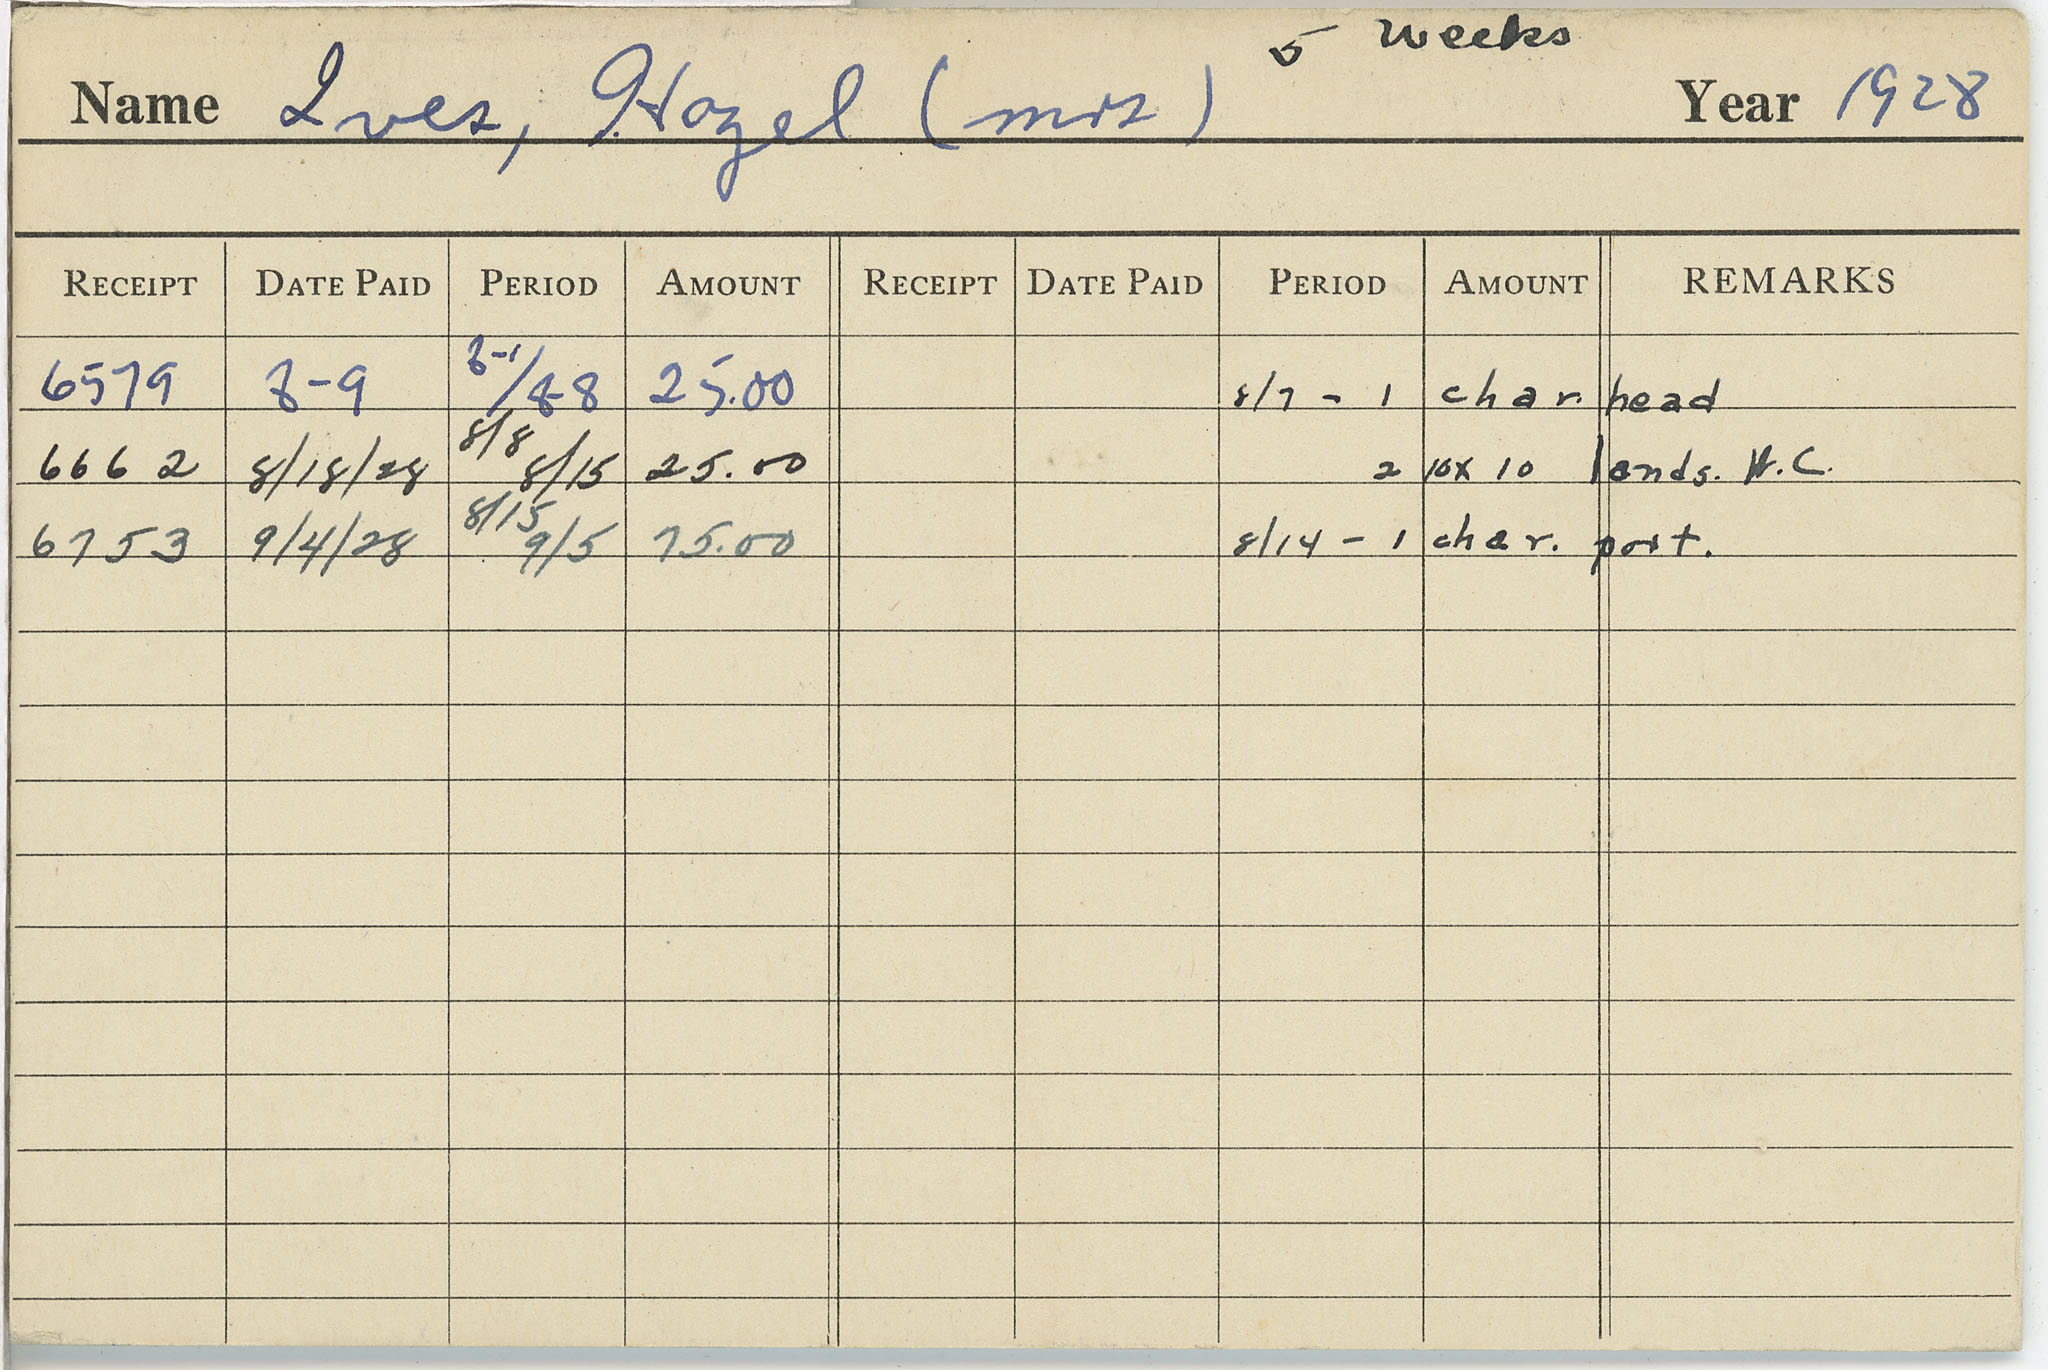 5 Weeks
Name Ives, Hazel (mrs) Year 1928
RECEIPT DATE PAID PERIOD AMOUNT RECEIPT DATE PAID PERIOD AMOUNT REMARKS
6579 8-9 8-1/8-8 25.00 8/7 - 1 char. head
6662 8/18/28 8/8 8/15 25.00 2 10x10 lands. W.C.
6753 9/4/28 8/15 9/5 75.00 8/14 - 1 char. port.